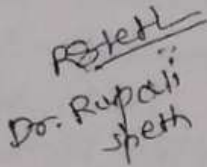 Dr. Rupali
sheth